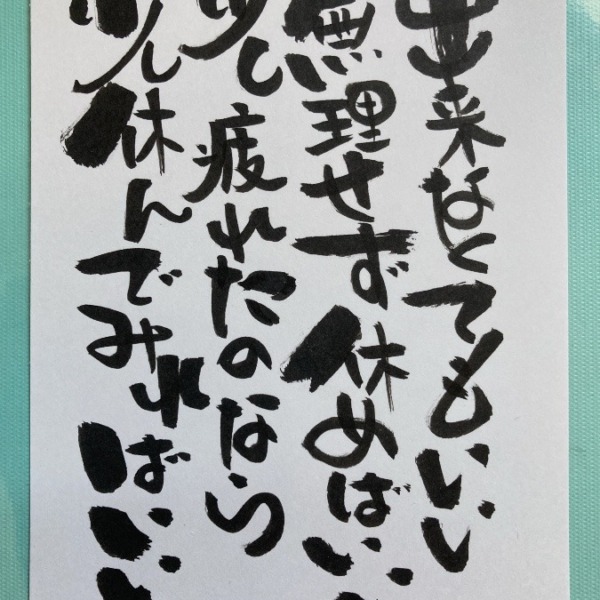 出来なくてもいい
無理せず休めばいい
少し疲れたのなら
少し休んでみればいい